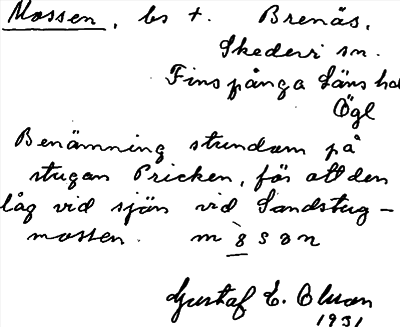 Mossen, bs t. Brenäs,
Skedevi sn.
Finspånga läns hd
Ögl
Benämning stundom på
stugan Pricken, för att den
låg vid sjön vid Sandstug-
mossen. m8sən
Gustaf E. Olson
1931